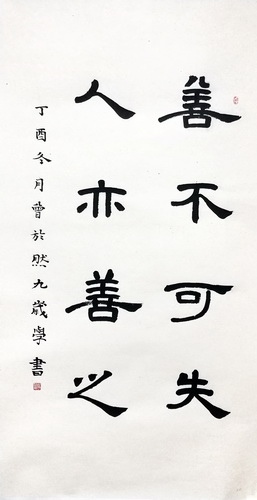 善不可失
人亦善之
丁酉冬月曾於然九歲學書